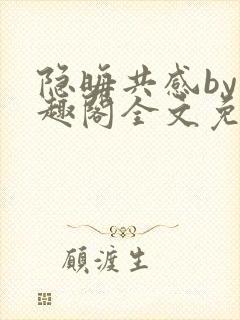 隐晦共感by
趣阁全文免
顾渡生